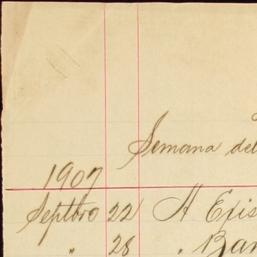 Semana del
1907
Septbro 22 A Exis
" 28 " Ban